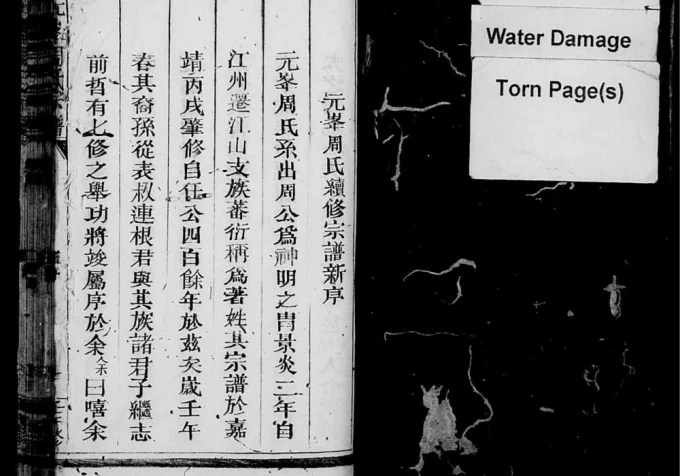 元峯周氏續修宗譜新序
元峯周氏系出周公爲神明之冑景炎二年自
江州遷江山支族蕃衍稱爲著姓其宗譜於嘉
靖丙戌肇修自任公四百餘年於茲矣歲壬午
春其裔孫從表叔連根君與其族諸君子繼志
前哲有七修之舉功將竣屬序於余余曰嘻余
Water Damage
Torn Page(s)